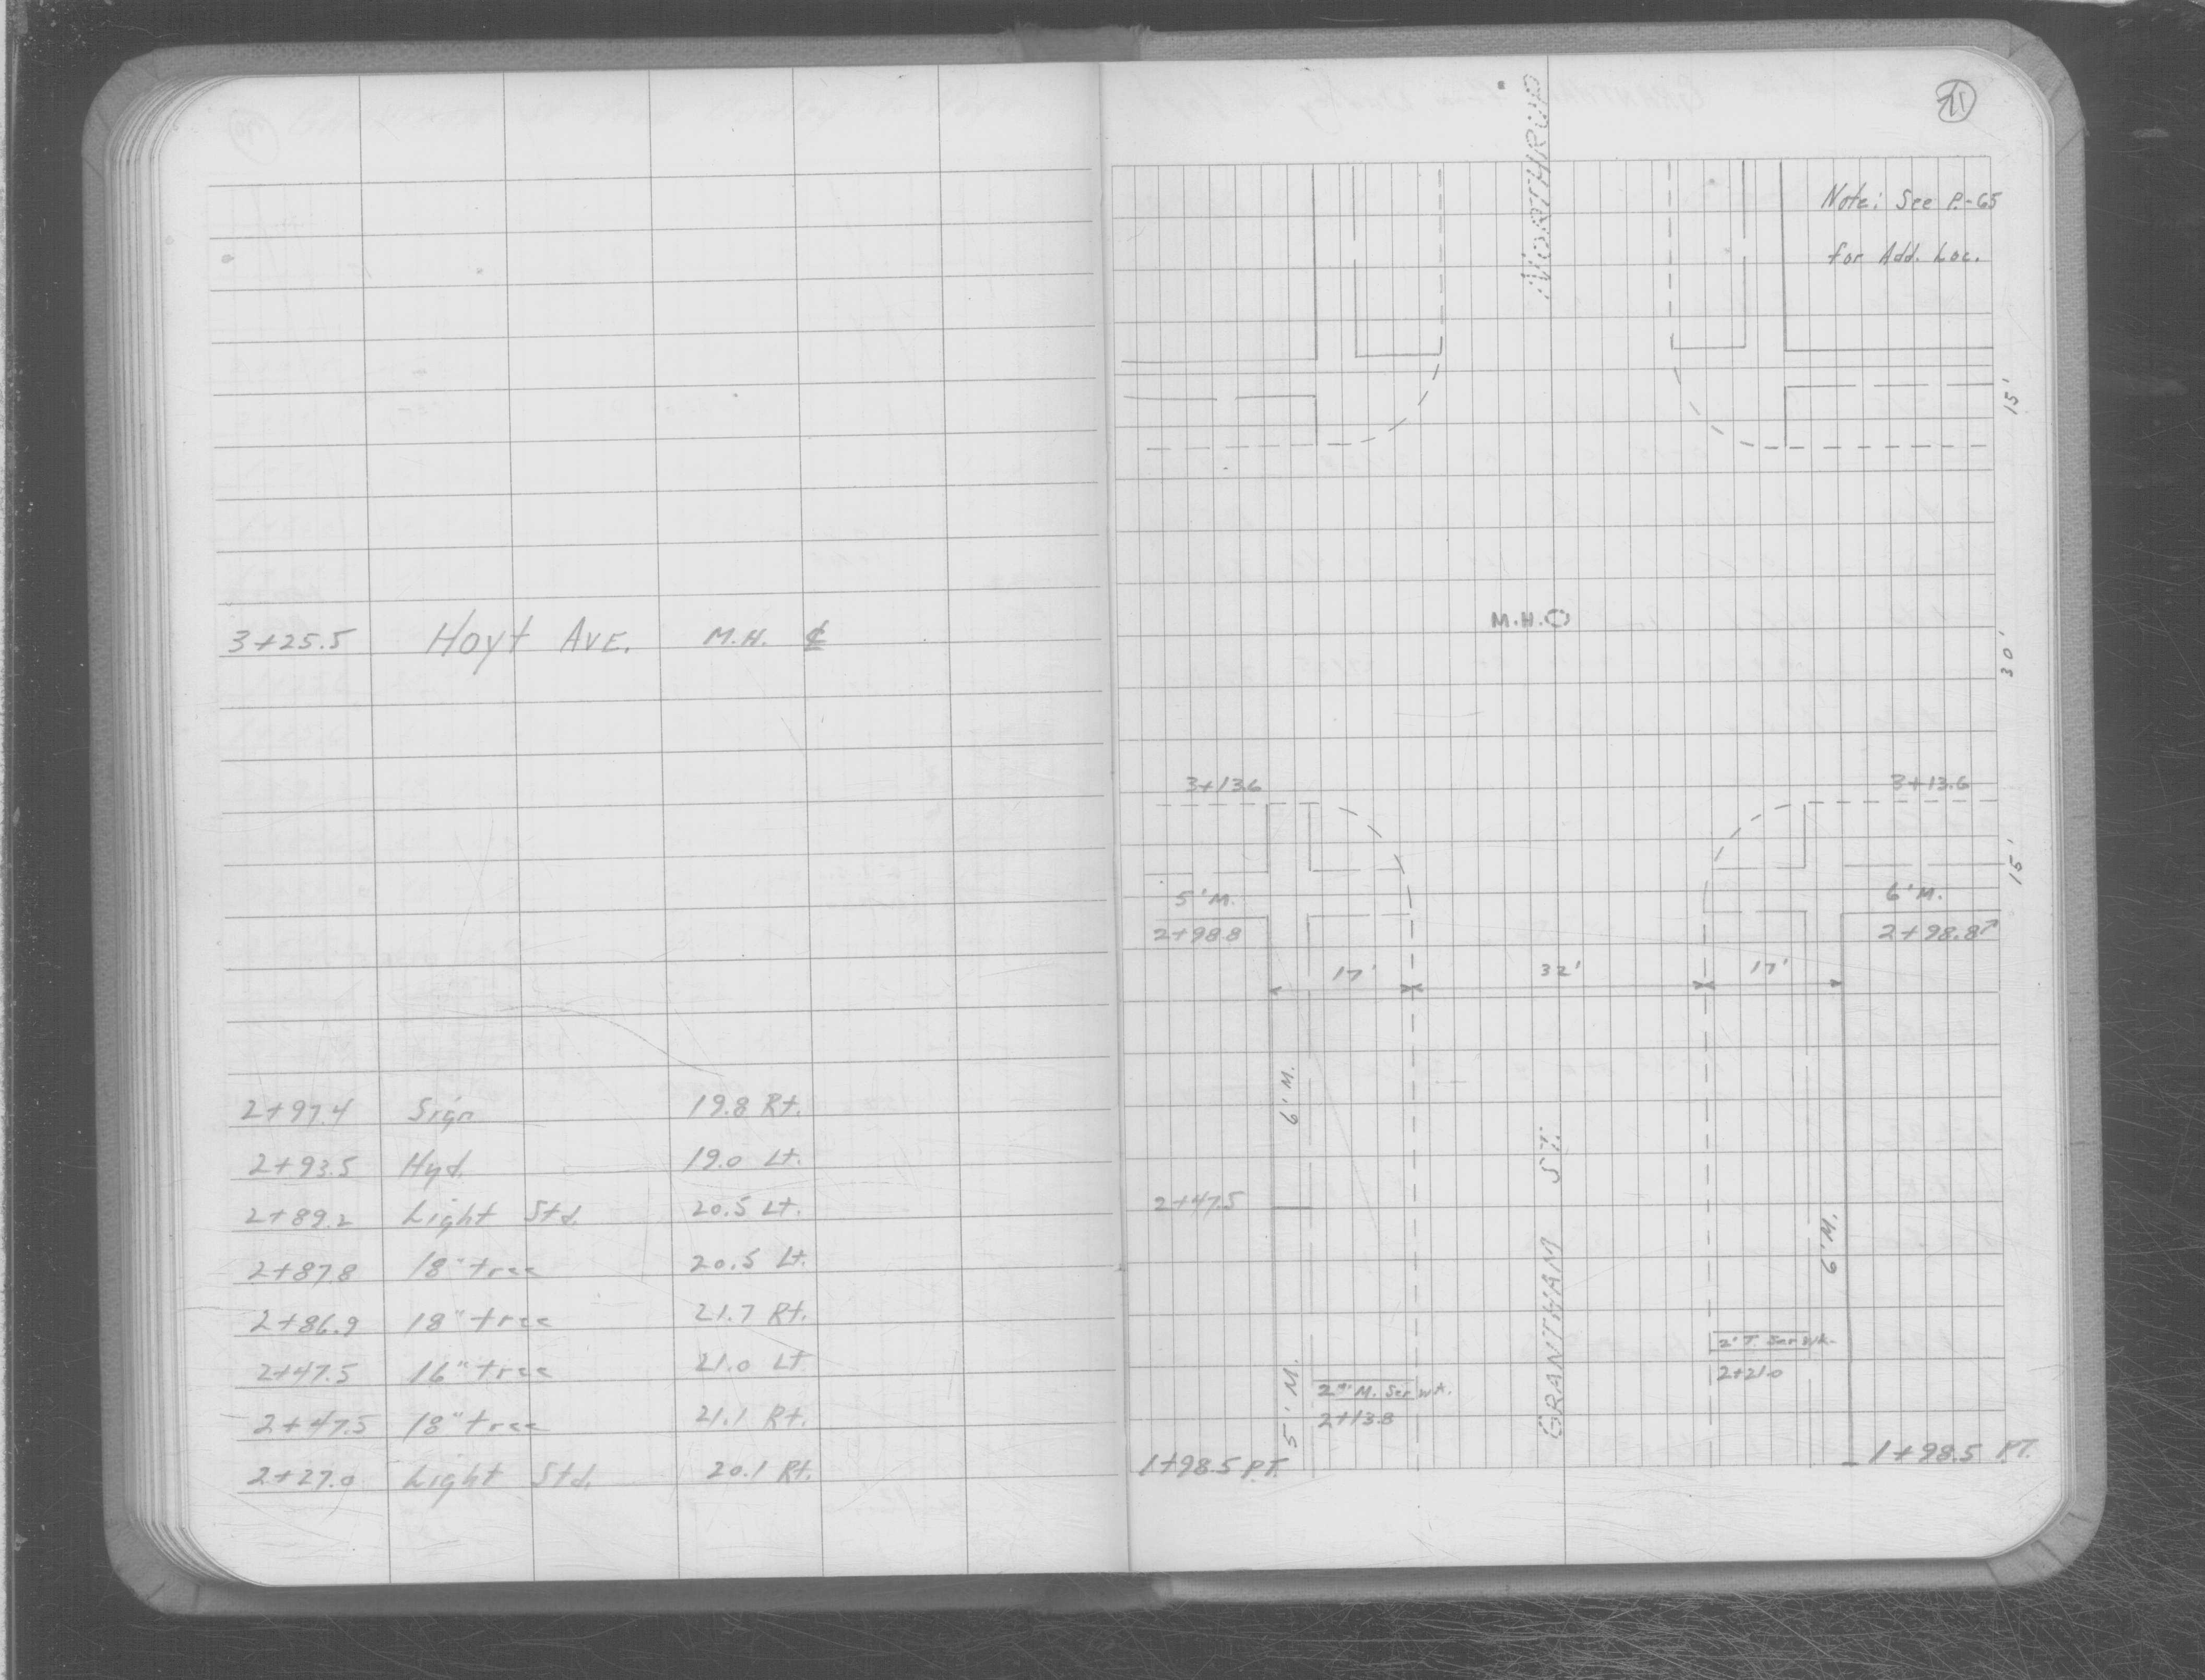 3+25.5 Hoyt Ave. M.H. ₵
2+97.4 Sign 19.8 Rt.
2+93.5 Hyd. 19.0 Lt.
2+89.2 Light Std. 20.5 Lt.
2+87.8 18" tree 20.5 Lt.
2+86.9 18" tree 21.7 Rt.
2+47.5 16" tree 21.0 Lt
2+47.5 18" tree 21.1 Rt.
2+27.0 Light Std. 20.1 Rt.
71
NORTHRUP
Note: See P.-65
for Add. Loc.
15'
M.H.
30'
3+13.6 3+13.6
15'
5' M. 6' M.
2+98.8 2+98.8
17' 32' 17'
6' M.
2+47.5
GRANTHAM ST.
6' M.
2' T. Ser Wk.
2+21.0
5' M.
M. Ser Wk.
2+13.8
1+98.5 P.T. 1+98.5 P.T.